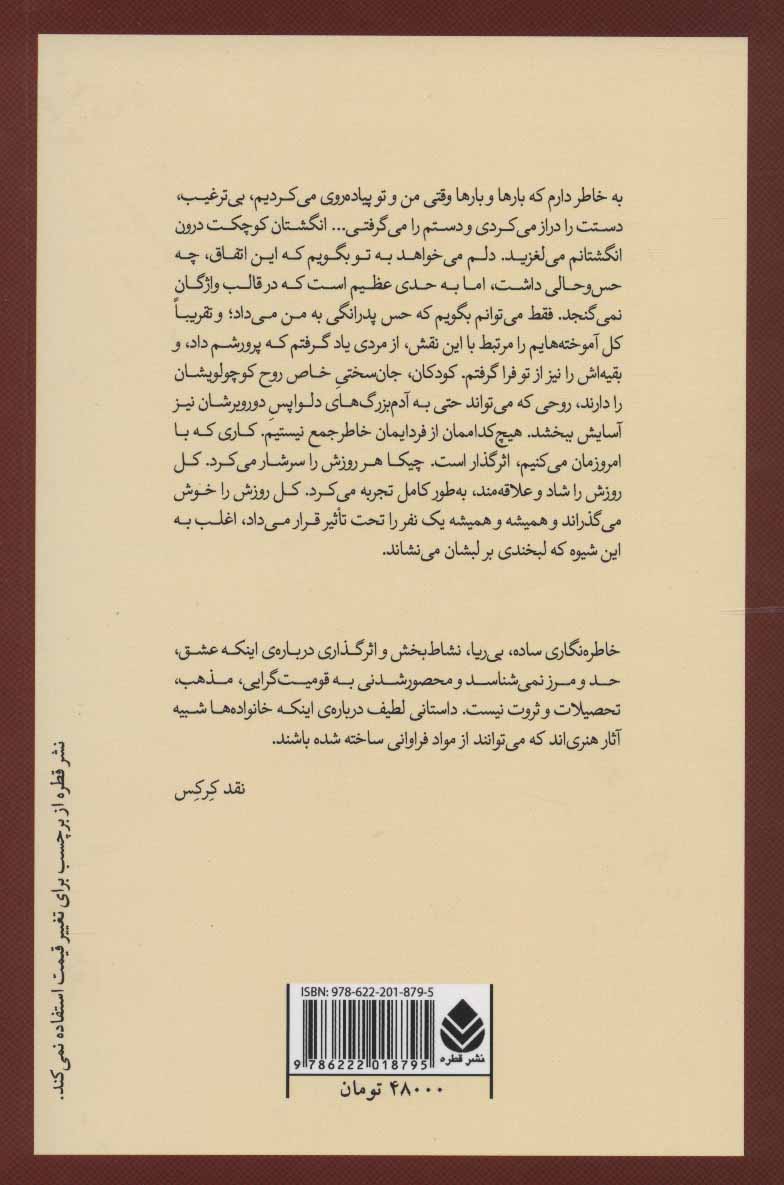 به خاطر دارم که بارها و بارها وقتی من و تو پیاده‌روی می‌کردیم، بی‌ترغیب،
دستت را دراز می‌کردی و دستم را می‌گرفتی... انگشتان کوچکت درون
انگشتانم می‌لغزید. دلم می‌خواهد به تو بگویم که این اتفاق، چه
حس‌وحالی داشت، اما به حدی عظیم است که در قالب واژگان
نمی‌گنجد. فقط می‌توانم بگویم که حس پدرانگی به من می‌داد؛ و تقریباً
کل آموخته‌هایم را مرتبط با این نقش، از مردی یاد گرفتم که پرورشم داد، و
بقیه‌اش را نیز از تو فرا گرفتم. کودکان، جان‌سختیِ خاص روح کوچولویشان
را دارند، روحی که می‌تواند حتی به آدم‌بزرگ‌های دلواپسِ دوروبرشان نیز
آسایش ببخشد. هیچ‌کداممان از فردایمان خاطرجمع نیستیم. کاری که با
امروزمان می‌کنیم، اثرگذار است. چیکا هر روزش را سرشار می‌کرد. کل
روزش را شاد و علاقه‌مند، به‌طور کامل تجربه می‌کرد. کل روزش را خوش
می‌گذراند و همیشه و همیشه یک نفر را تحت تأثیر قرار می‌داد، اغلب به
این شیوه که لبخندی بر لبشان می‌نشاند.
خاطره‌نگاری ساده، بی‌ریا، نشاط‌بخش و اثرگذاری درباره‌ی اینکه عشق،
حد و مرز نمی‌شناسد و محصورشدنی به قومیت‌گرایی، مذهب،
تحصیلات و ثروت نیست. داستانی لطیف درباره‌ی اینکه خانواده‌ها شبیه
آثار هنری‌اند که می‌توانند از مواد فراوانی ساخته شده باشند.
نقد کِرکِس
نشر قطره از برچسب برای تغییر قیمت استفاده نمی‌کند.
ISBN: 978-622-201-879-5
9 786222 018795
نشر قطره
۴۸۰۰۰ تومان